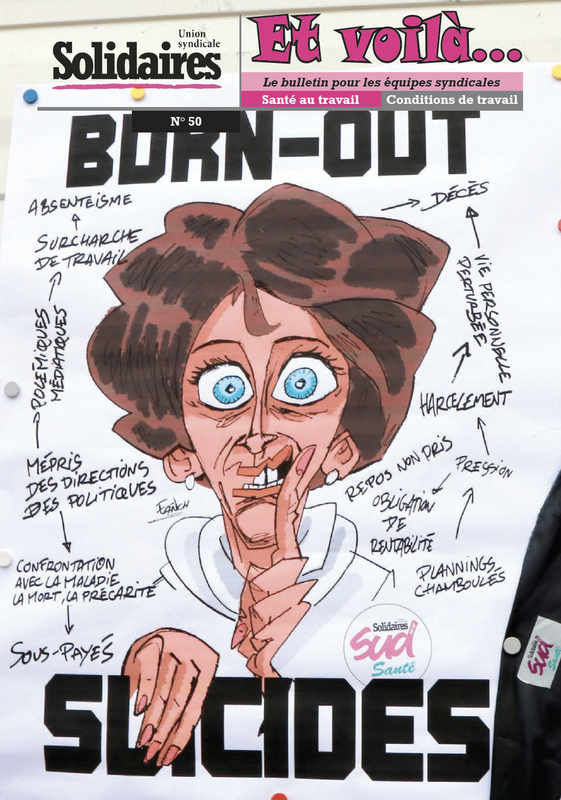 Union
syndicale
Solidaires
Et voilà...
Le bulletin pour les équipes syndicales
Santé au travail
Conditions de travail
N° 50
BURN-OUT
ABSENTEÏSME
SURCHARCHE
DE TRAVAIL
POLEMIQUES
MÉDIATIQUES
MÉPRIS
DES DIRECTIONS
DES POLITIQUES
CONFRONTATION
AVEC LA MALADIE
LA MORT, LA PRÉCARITÉ
SOUS-PAYÉS
DÉCÈS
VIE PERSONNELLE
PERTURBÉE
HARCELEMENT
PRESSION
REPOS NON PRIS
OBLIGATION
DE
RENTABILITÉ
PLANNINGS
CHAMBOULÉS
Fañch
Solidaires
Sud
Santé
Solidaires
Sud
SUICIDES